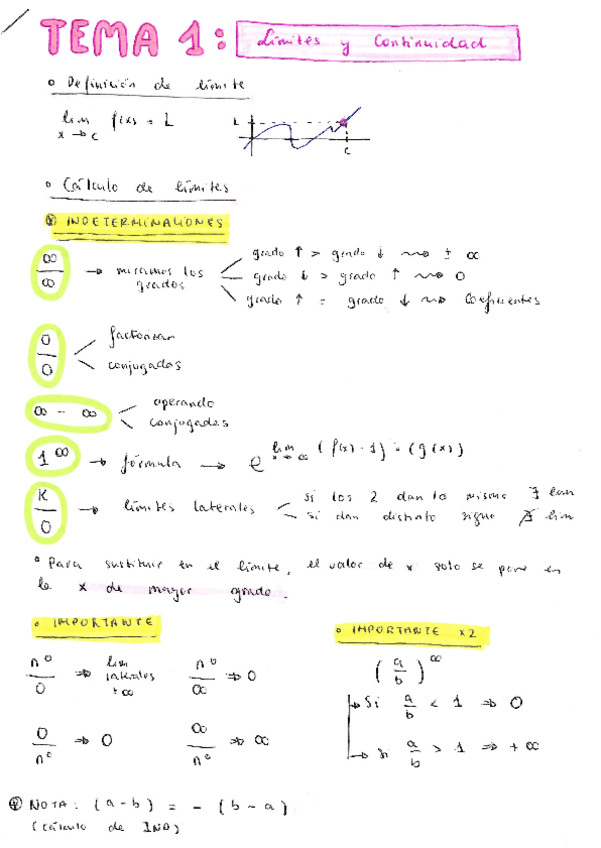 TEMA 1: Límites y Continuidad
o Definición de límite
lim f(x) = L
x → c
L
c
o Cálculo de límites
INDETERMINACIONES
∞/∞ → miramos los grados
grado ↑ > grado ↓ ⇝ ± ∞
grado ↓ > grado ↑ ⇝ 0
grado ↑ = grado ↓ ⇝ Coeficientes
0/0
factorizar
conjugados
∞ - ∞
operando
conjugados
1^∞ → fórmula → e^ lim x→∞ (f(x) - 1) · (g(x))
K/0 → límites laterales
si los 2 dan lo mismo ∃ lim
si dan distinto signo ∄ lim
o Para sustituir en el límite, el valor de x solo se pone en
la x de mayor grado.
o IMPORTANTE
nº/0 ⇒ lim laterales ± ∞
nº/∞ ⇒ 0
0/nº ⇒ 0
∞/nº ⇒ ∞
o IMPORTANTE x2
(a/b)^∞
Si a/b < 1 ⇒ 0
si a/b > 1 ⇒ + ∞
NOTA: (a - b) = - (b - a)
(cálculo de IND)